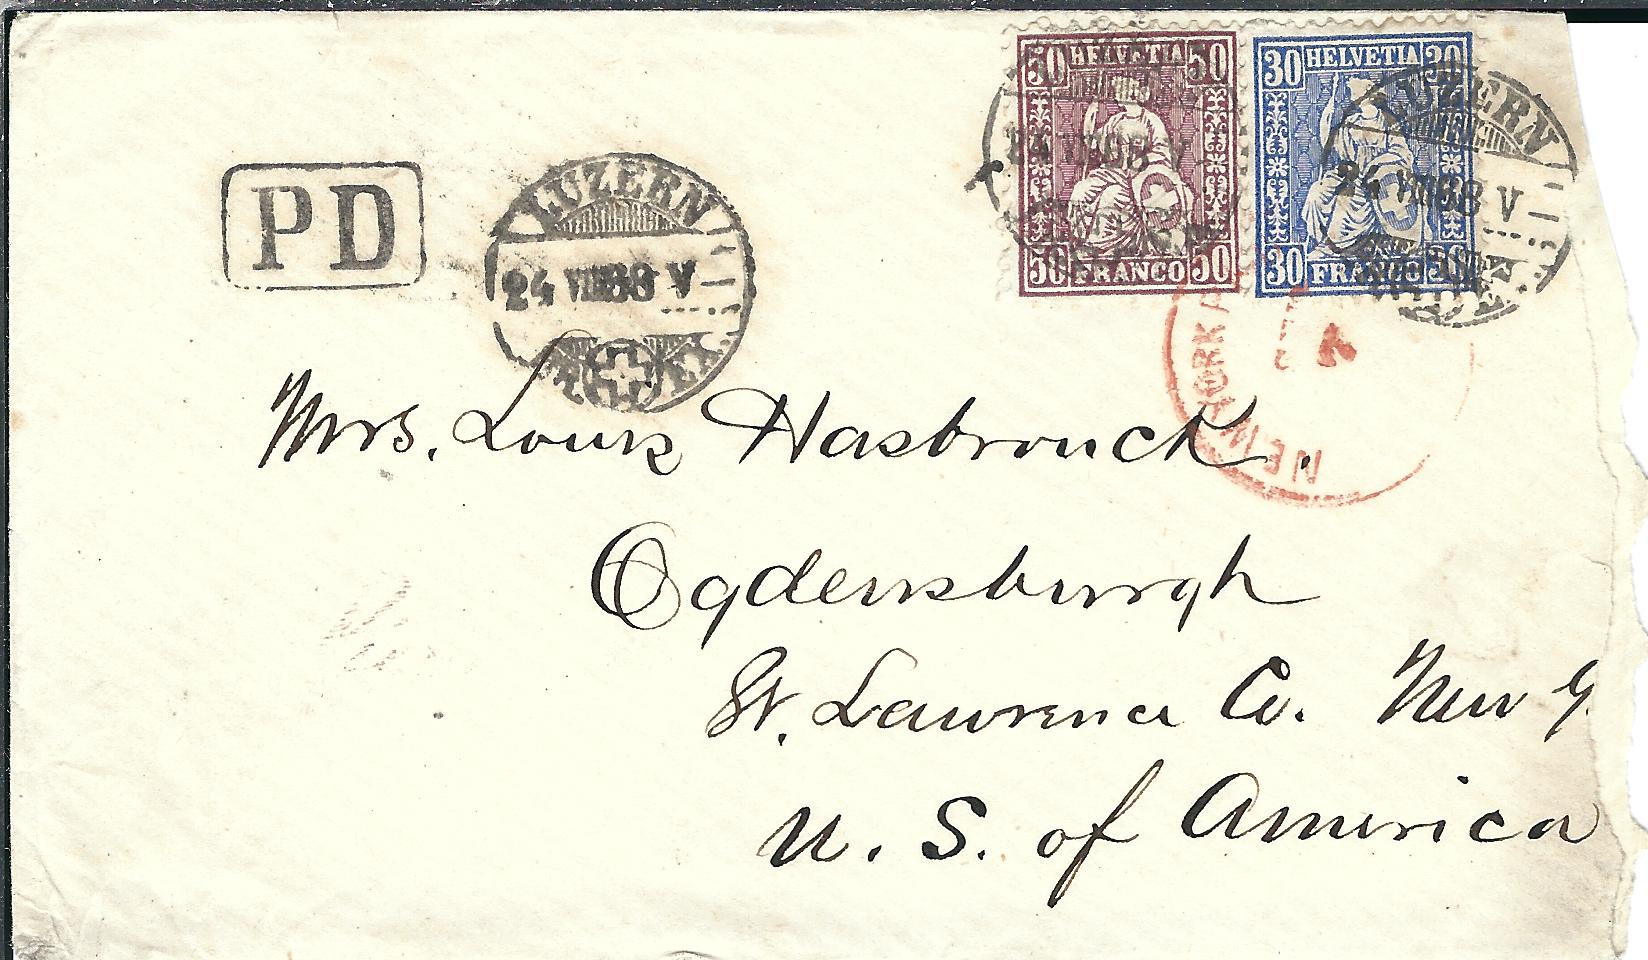 50 HELVETIA 50
50 FRANCO 50
30 HELVETIA 30
30 FRANCO 30
LUZERN
24 VIII 68 V
PD
LUZERN
24 VIII 68 V
LUZERN
24 VIII 68 V
NEW YORK
Mrs. Louis Hasbrouck.
Ogdensburgh
St. Lawrence Co. New Y.
U. S. of America